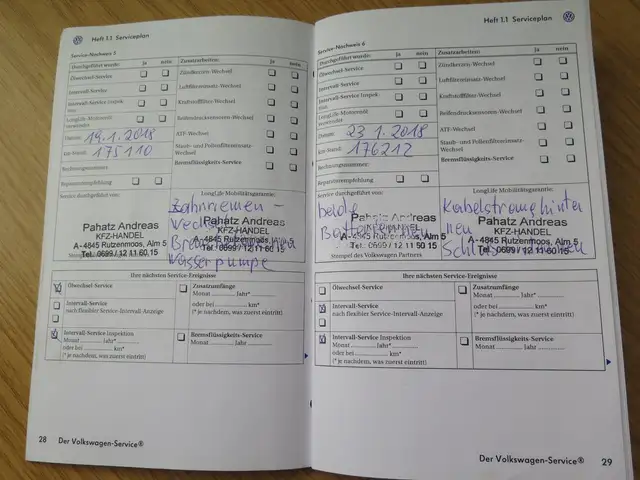 Heft 1.1 Serviceplan
Service-Nachweis 5
Durchgeführt wurde: Ja nein Zusatzarbeiten: Ja nein
Ölwechsel-Service Zündkerzen-Wechsel
Intervall-Service Luftfiltereinsatz-Wechsel
Intervall-Service Inspektion Kraftstofffilter-Wechsel
LongLife-Motorenöl verwendet Reifendruckmessoren-Wechsel
Datum: 19.1.2018 ATF-Wechsel
km-Stand: 175110 Staub- und Pollenfiltereinsatz-Wechsel
Rechnungsnummer: Bremsflüssigkeits-Service
Reparaturempfehlung
Service durchgeführt von: LongLife Mobilitätsgarantie:
Zahnriemen-
Wechsel
Wasserpumpe
Pahatz Andreas
KFZ-HANDEL
A-4845 Rutzenmoos, Alm 5
Tel. 0699 / 12 11 60 15
Pahatz Andreas
KFZ-HANDEL
A-4845 Rutzenmoos, Alm 5
Tel. 0699 / 12 11 60 15
Ihre nächsten Service-Ereignisse
Ölwechsel-Service Zusatzumfänge
Monat Jahr*
oder bei km*
(* je nachdem, was zuerst eintritt)
Intervall-Service
nach flexibler Service-Intervall-Anzeige
Intervall-Service Inspektion Bremsflüssigkeits-Service
Monat Jahr* Monat Jahr*
oder bei km*
(* je nachdem, was zuerst eintritt)
28 Der Volkswagen-Service®
Heft 1.1 Serviceplan
Service-Nachweis 6
Durchgeführt wurde: Ja nein Zusatzarbeiten: Ja nein
Ölwechsel-Service Zündkerzen-Wechsel
Intervall-Service Luftfiltereinsatz-Wechsel
Intervall-Service Inspektion Kraftstofffilter-Wechsel
LongLife-Motorenöl verwendet Reifendruckmessoren-Wechsel
Datum: 23.1.2018 ATF-Wechsel
km-Stand: 176212 Staub- und Pollenfiltereinsatz-Wechsel
Rechnungsnummer: Bremsflüssigkeits-Service
Reparaturempfehlung
Service durchgeführt von: LongLife Mobilitätsgarantie:
beide
Kabelstrang hinten
Pahatz Andreas
KFZ-HANDEL
A-4845 Rutzenmoos, Alm 5
Tel. 0699 / 12 11 60 15
Pahatz Andreas
KFZ-HANDEL
A-4845 Rutzenmoos, Alm 5
Tel. 0699 / 12 11 60 15
Stempel des Volkswagen Partners
Ihre nächsten Service-Ereignisse
Ölwechsel-Service Zusatzumfänge
Monat Jahr*
oder bei km*
(* je nachdem, was zuerst eintritt)
Intervall-Service
nach flexibler Service-Intervall-Anzeige
Intervall-Service Inspektion Bremsflüssigkeits-Service
Monat Jahr* Monat Jahr*
oder bei km*
(* je nachdem, was zuerst eintritt)
Der Volkswagen-Service® 29